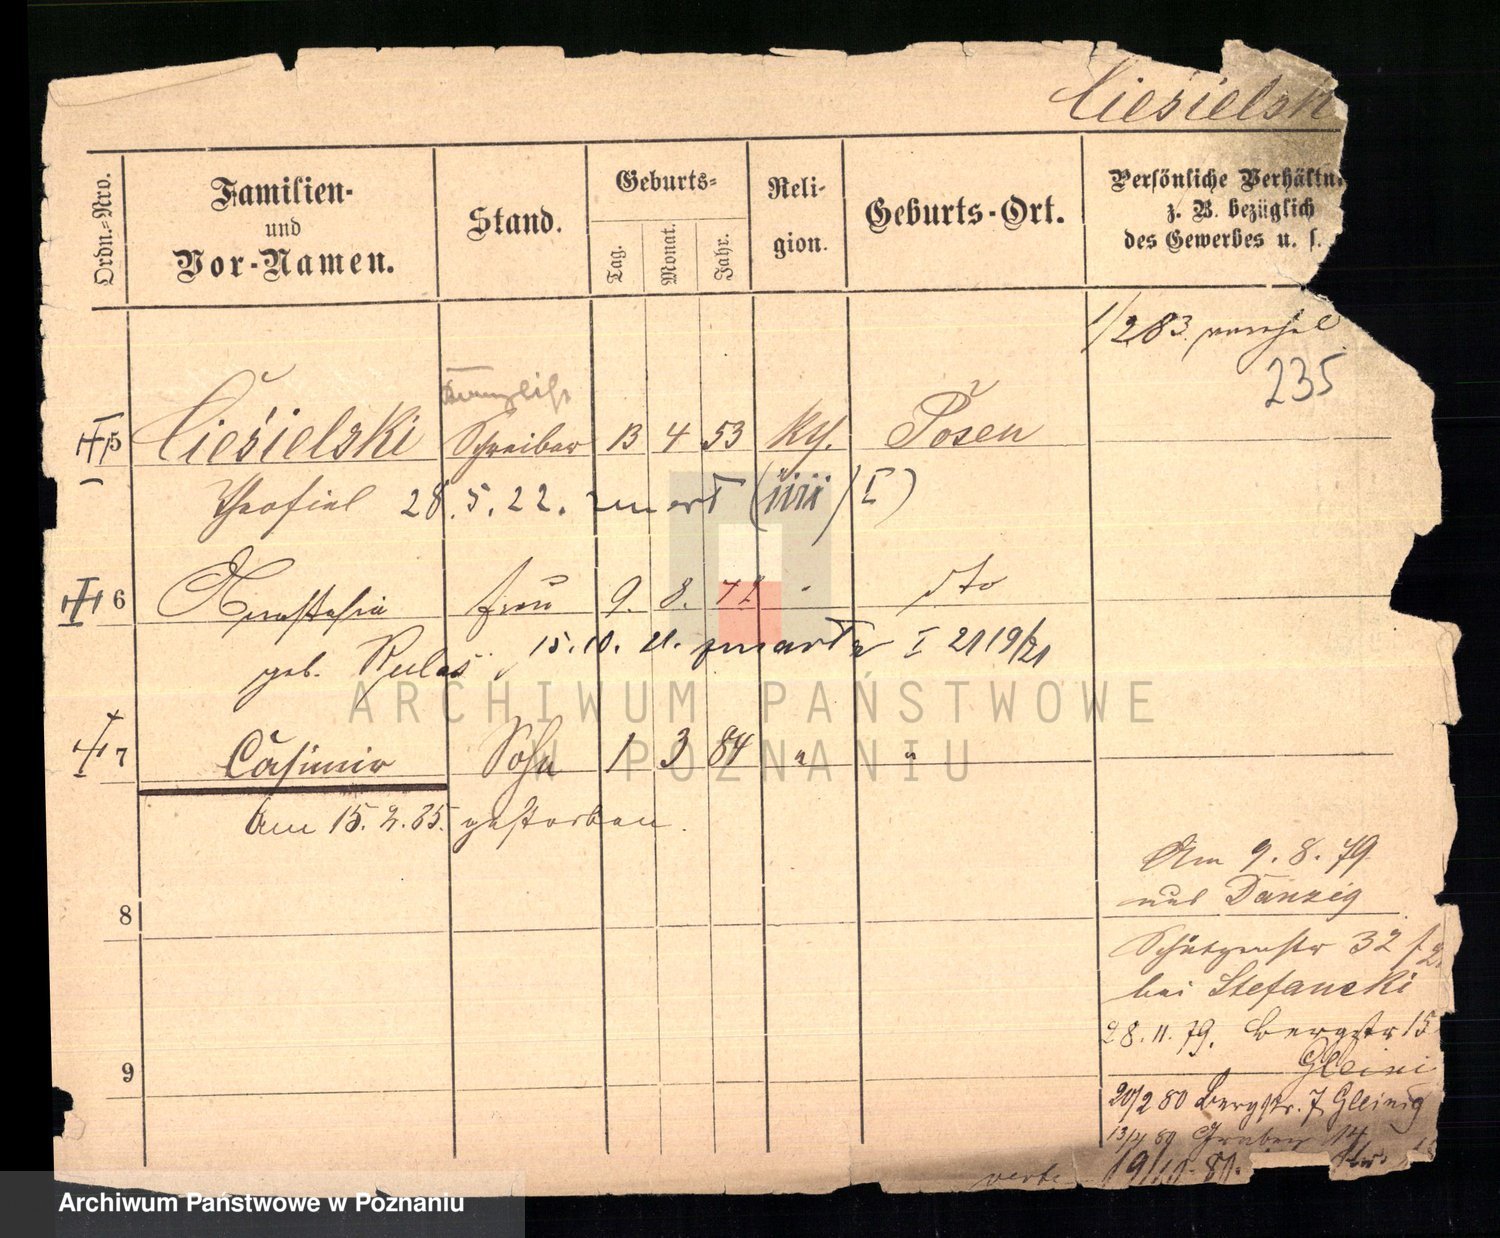 Ciesielsk
Ordn.-Nro.
Familien-
und
Vor-Namen.
Stand.
Geburts-
Tag.
Monat.
Jahr.
Reli-
gion.
Geburts-Ort.
Persönliche Verhältn
z. B. bezüglich
des Gewerbes u. s.
1/2 83
235
Kanzlist
5 Ciesielski Schreiber 13 4 53 kth. Posen
Theofiel 28.5.22. I)
6 Anastasia Frau 9. 8. dto
geb. 15.10.21. I 2119/21
7 Casimir Sohn 1 3 84 " "
Am 15.2.85. gestorben.
Am 9.8.79
aus Danzig
8
Schützenstr 32
bei Stefanski
28.11.79. Bergstr 15
Gleini
9
20/2 80 Bergstr. 7 Gleinig
14
ARCHIWUM PAŃSTWOWE
W POZNANIU
Archiwum Państwowe w Poznaniu